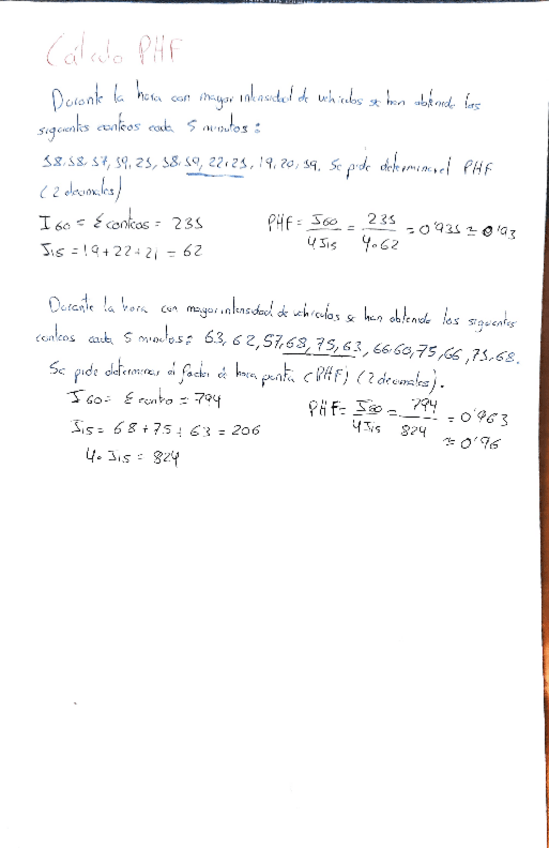 Cálculo PHF
Durante la hora con mayor intensidad de vehículos se han obtenido los
siguientes conteos cada 5 minutos:
18, 18, 17, 19, 23, 18, 19, 22, 21, 19, 20, 19. Se pide determinar el PHF
(2 decimales)
I60 = Σ conteos = 235
PHF = I60 / 4I15 = 235 / 4·62 = 0'935 ≈ 0'93
I15 = 19 + 22 + 21 = 62
Durante la hora con mayor intensidad de vehículos se han obtenido los siguientes
conteos cada 5 minutos: 63, 62, 57, 68, 75, 63, 66, 60, 75, 66, 71, 68.
Se pide determinar el factor de hora punta (PHF) (2 decimales).
I60 = Σ conteo = 794
PHF = I60 / 4I15 = 794 / 824 = 0'963
I15 = 68 + 75 + 63 = 206
≈ 0'96
4·I15 = 824